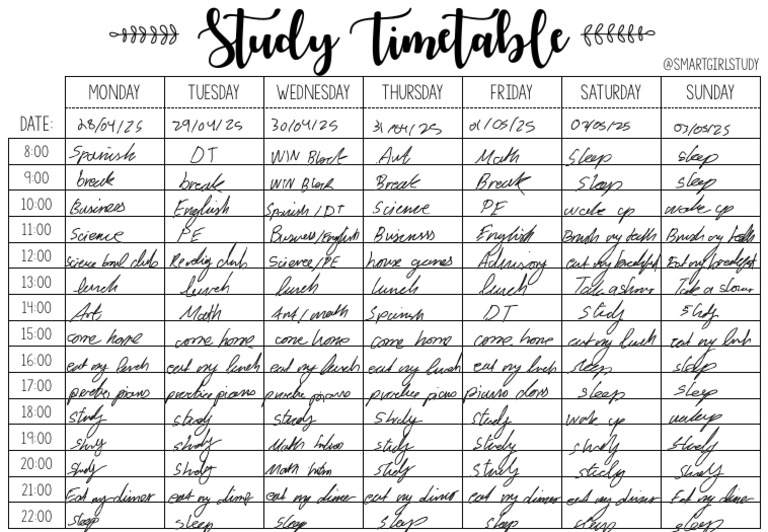 Study Timetable
@SMARTGIRLSTUDY
MONDAY TUESDAY WEDNESDAY THURSDAY FRIDAY SATURDAY SUNDAY
DATE: 28/04/25 29/04/25 30/04/25 31/04/25 01/05/25 02/05/25 03/05/25
8:00 Spanish DT WIN Block Art Math Sleep sleep
9:00 break break WIN Block Break Break Sleep sleep
10:00 Business English Spanish/DT Science PE wake up wake up
11:00 Science PE Business/English Business English Brush my teeth Brush my teeth
12:00 science bowl club Reading club Science/PE house games Advisory eat my breakfast Eat my breakfast
13:00 lunch lunch lunch Lunch lunch Take a shower Take a shower
14:00 Art Math Art/math Spanish DT study study
15:00 come home come home come home come home come home eat my lunch eat my lunch
16:00 eat my lunch eat my lunch eat my lunch eat my lunch eat my lunch sleep sleep
17:00 practice piano practice piano practice piano practice piano piano class sleep sleep
18:00 study study study study study wake up wakeup
19:00 study study Math study study study study
20:00 study study Math study study study study
21:00 Eat my dinner eat my dinner eat my dinner eat my dinner eat my dinner eat my dinner Eat my dinner
22:00 sleep sleep sleep sleep sleep sleep sleep